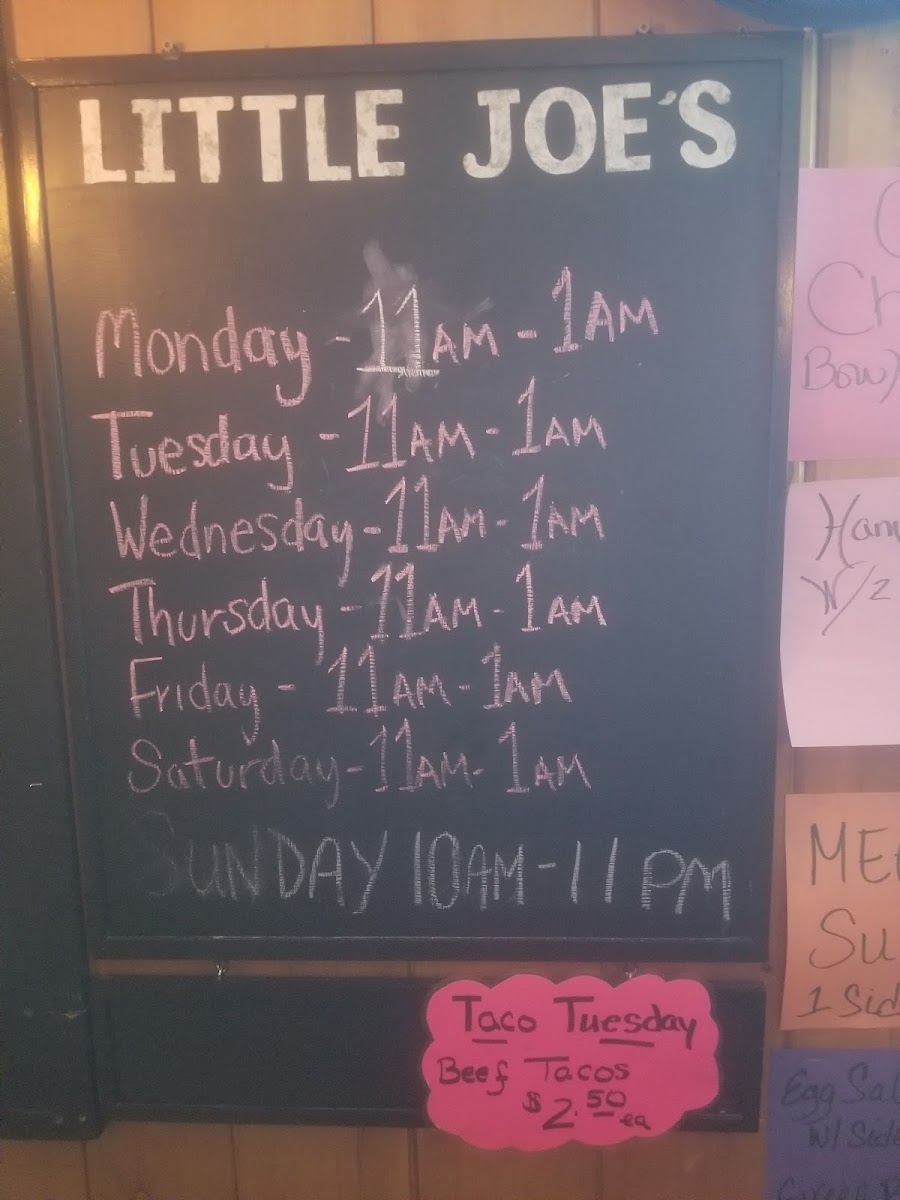 LITTLE JOE'S
Monday - 11AM - 1AM
Tuesday - 11AM - 1AM
Wednesday - 11AM - 1AM
Thursday - 11AM - 1AM
Friday - 11AM - 1AM
Saturday - 11AM - 1AM
SUNDAY 10AM - 11PM
Taco Tuesday
Beef Tacos
$2.50 ea
Ch
Bowl
Ham
W/2
ME
Su
1 Sid
Egg Sal
W/ Side